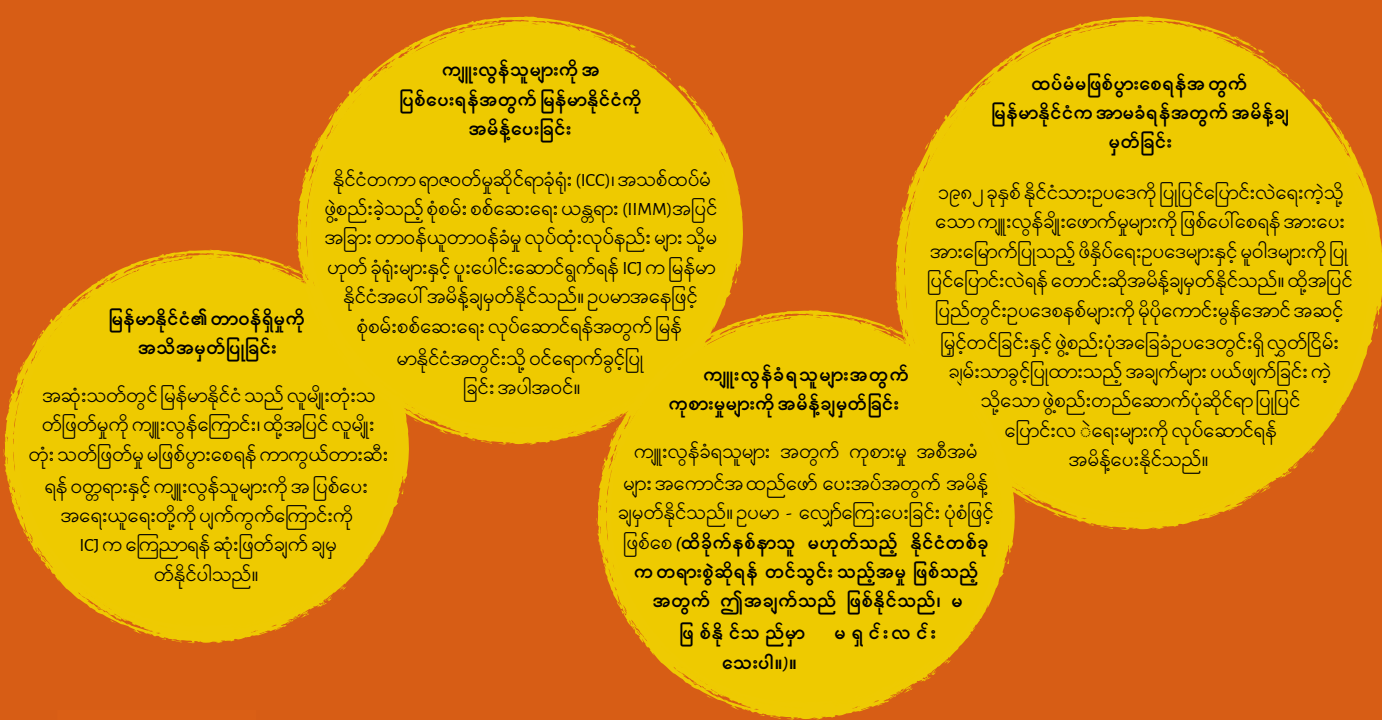 မြန်မာနိုင်ငံ၏ တာဝန်ရှိမှုကို
အသိအမှတ်ပြုခြင်း
အဆုံးသတ်တွင် မြန်မာနိုင်ငံ သည် လူမျိုးတုံးသ
တ်ဖြတ်မှုကို ကျူးလွန်ကြောင်း၊ ထို့အပြင် လူမျိုး
တုံး သတ်ဖြတ်မှု မဖြစ်ပွားစေရန် ကာကွယ်တားဆီး
ရန် ဝတ္တရားနှင့် ကျူးလွန်သူများကို အ ပြစ်ပေး
အရေးယူရေးတို့ကို ပျက်ကွက်ကြောင်းကို
ICJ က ကြေညာရန် ဆုံးဖြတ်ချက် ချမှ
တ်နိုင်ပါသည်။
ကျူးလွန်သူများကို အ
ပြစ်ပေးရန်အတွက် မြန်မာနိုင်ငံကို
အမိန့်ပေးခြင်း
နိုင်ငံတကာ ရာဇဝတ်မှုဆိုင်ရာခုံရုံး (ICC)၊ အသစ်ထပ်မံ
ဖွဲ့စည်းခဲ့သည့် စုံစမ်း စစ်ဆေးရေး ယန္တရား (IIMM)အပြင်
အခြား တာဝန်ယူတာဝန်ခံမှု လုပ်ထုံးလုပ်နည်း များ သို့မ
ဟုတ် ခုံရုံးများနှင့် ပူးပေါင်းဆောင်ရွက်ရန် ICJ က မြန်မာ
နိုင်ငံအပေါ် အမိန့်ချမှတ်နိုင်သည်။ ဥပမာအနေဖြင့်
စုံစမ်းစစ်ဆေးရေး လုပ်ဆောင်ရန်အတွက် မြန်
မာနိုင်ငံအတွင်းသို့ ဝင်ရောက်ခွင့်ပြု
ခြင်း အပါအဝင်။
ကျူးလွန်ခံရသူများအတွက်
ကုစားမှုများကို အမိန့်ချမှတ်ခြင်း
ကျူးလွန်ခံရသူများ အတွက် ကုစားမှု အစီအမံ
များ အကောင်အထည်ဖော် ပေးအပ်အတွက် အမိန့်
ချမှတ်နိုင်သည်။ ဥပမာ - လျော်ကြေးပေးခြင်း ပုံစံဖြင့်
ဖြစ်စေ (ထိခိုက်နစ်နာသူ မဟုတ်သည့် နိုင်ငံတစ်ခု
က တရားစွဲဆိုရန် တင်သွင်း သည့်အမှု ဖြစ်သည့်
အတွက် ဤအချက်သည် ဖြစ်နိုင်သည်၊ မ
ဖြ စ်နို င်သ ည်မှာ မ ရှ င်း လ င်း
သေးပါ။)။
ထပ်မံမဖြစ်ပွားစေရန်အ တွက်
မြန်မာနိုင်ငံက အာမခံရန်အတွက် အမိန့်ချ
မှတ်ခြင်း
၁၉၈၂ ခုနှစ် နိုင်ငံသားဥပဒေကို ပြုပြင်ပြောင်းလဲရေးကဲ့သို့
သော ကျူးလွန်ချိုးဖောက်မှုများကို ဖြစ်ပေါ်စေရန် အားပေး
အားမြှောက်ပြုသည့် ဖိနှိပ်ရေးဥပဒေများနှင့် မူဝါဒများကို ပြု
ပြင်ပြောင်းလဲရန် တောင်းဆိုအမိန့်ချမှတ်နိုင်သည်။ ထို့အပြင်
ပြည်တွင်းဥပဒေစနစ်များကို မိုပိုကောင်းမွန်အောင် အဆင့်
မြှင့်တင်ခြင်းနှင့် ဖွဲ့စည်းပုံအခြေခံဥပဒေတွင်းရှိ လွှတ်ငြိမ်း
ချမ်းသာခွင့်ပြုထားသည့် အချက်များ ပယ်ဖျက်ခြင်း ကဲ့
သို့သော ဖွဲ့စည်းတည်ဆောက်ပုံဆိုင်ရာ ပြုပြင်
ပြောင်းလ ဲရေးများကို လုပ်ဆောင်ရန်
အမိန့်ပေးနိုင်သည်။